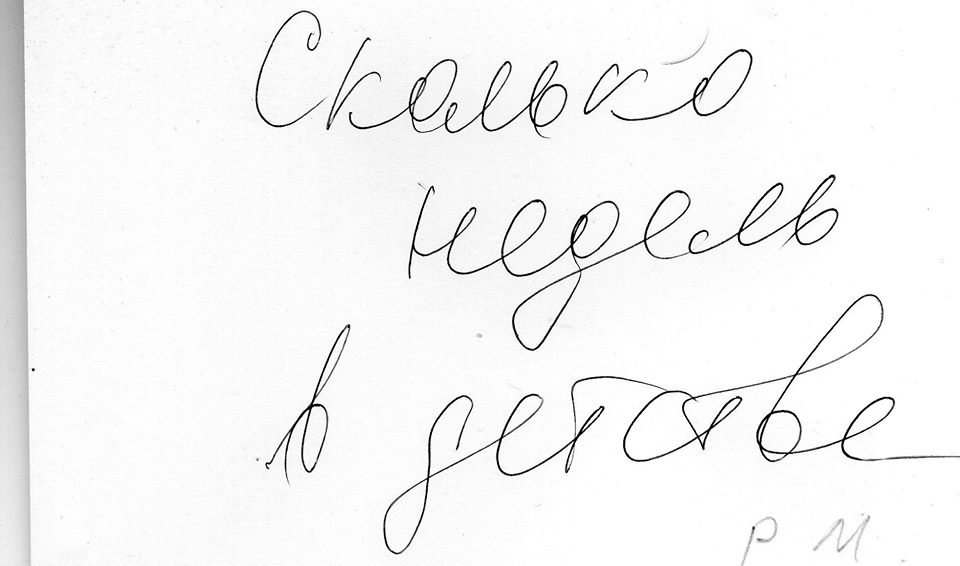 Сколько
недель
в детстве
Р М.